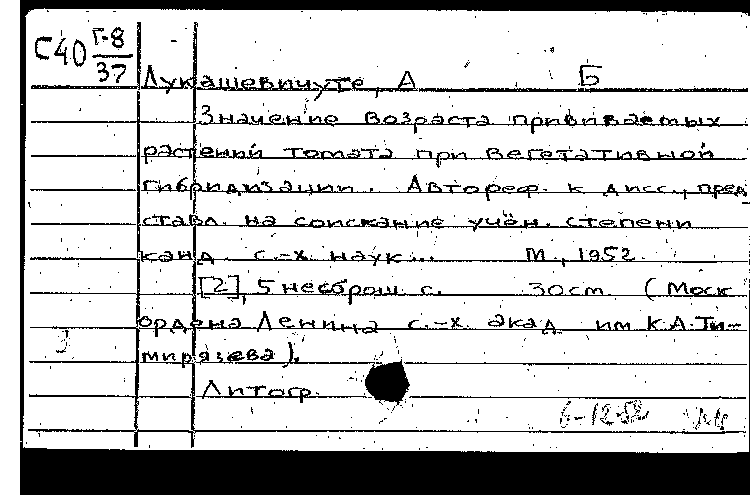 С40 Г-8
37
Лукашевичуте, А Б
Значение возраста прививаемых
растений томата при вегетативной
гибридизации. Автореф. к дисс., пред
ставл. на соискание учён. степени
канд. с.-х. наук... М., 1952.
[2], 5 несброш. с. 30 см (Моск
ордена Ленина с.-х. акад им К.А. Ти-
мирязева).
Литогр.
6-12-52